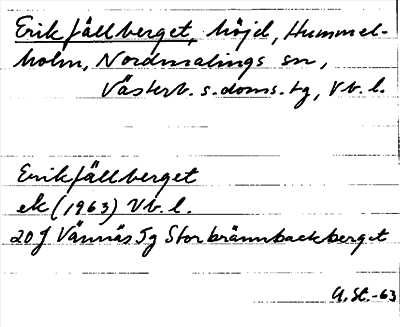 Erikfällberget, höjd, Hummel-
holm, Nordmalings sn,
Västerb. s. doms. tg, Vb. l.
Erikfällberget
ek (1963) Vb. l.
20J Vännäs 5g Storbrännbackberget
A. St. -63